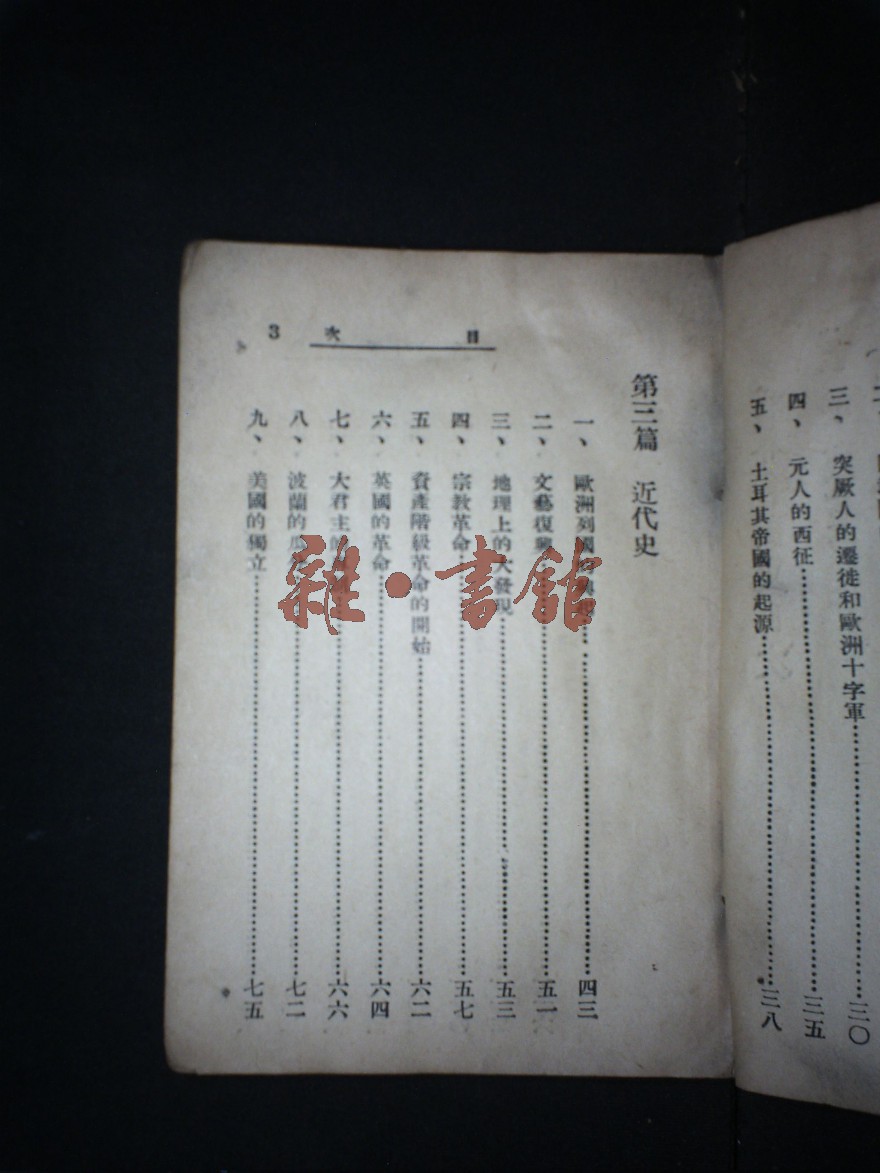 三、突厥人的遷徙和歐洲十字軍……三〇
四、元人的西征……三五
五、土耳其帝國的起源……三八
目次 3
第三篇 近代史
一、歐洲列國的興起……四三
二、文藝復興……五一
三、地理上的大發現……五三
四、宗教革命……五七
五、資產階級革命的開始……六二
六、英國的革命……六四
七、大君主的……六六
八、波蘭的瓜分……七二
九、美國的獨立……七五
雜·書館